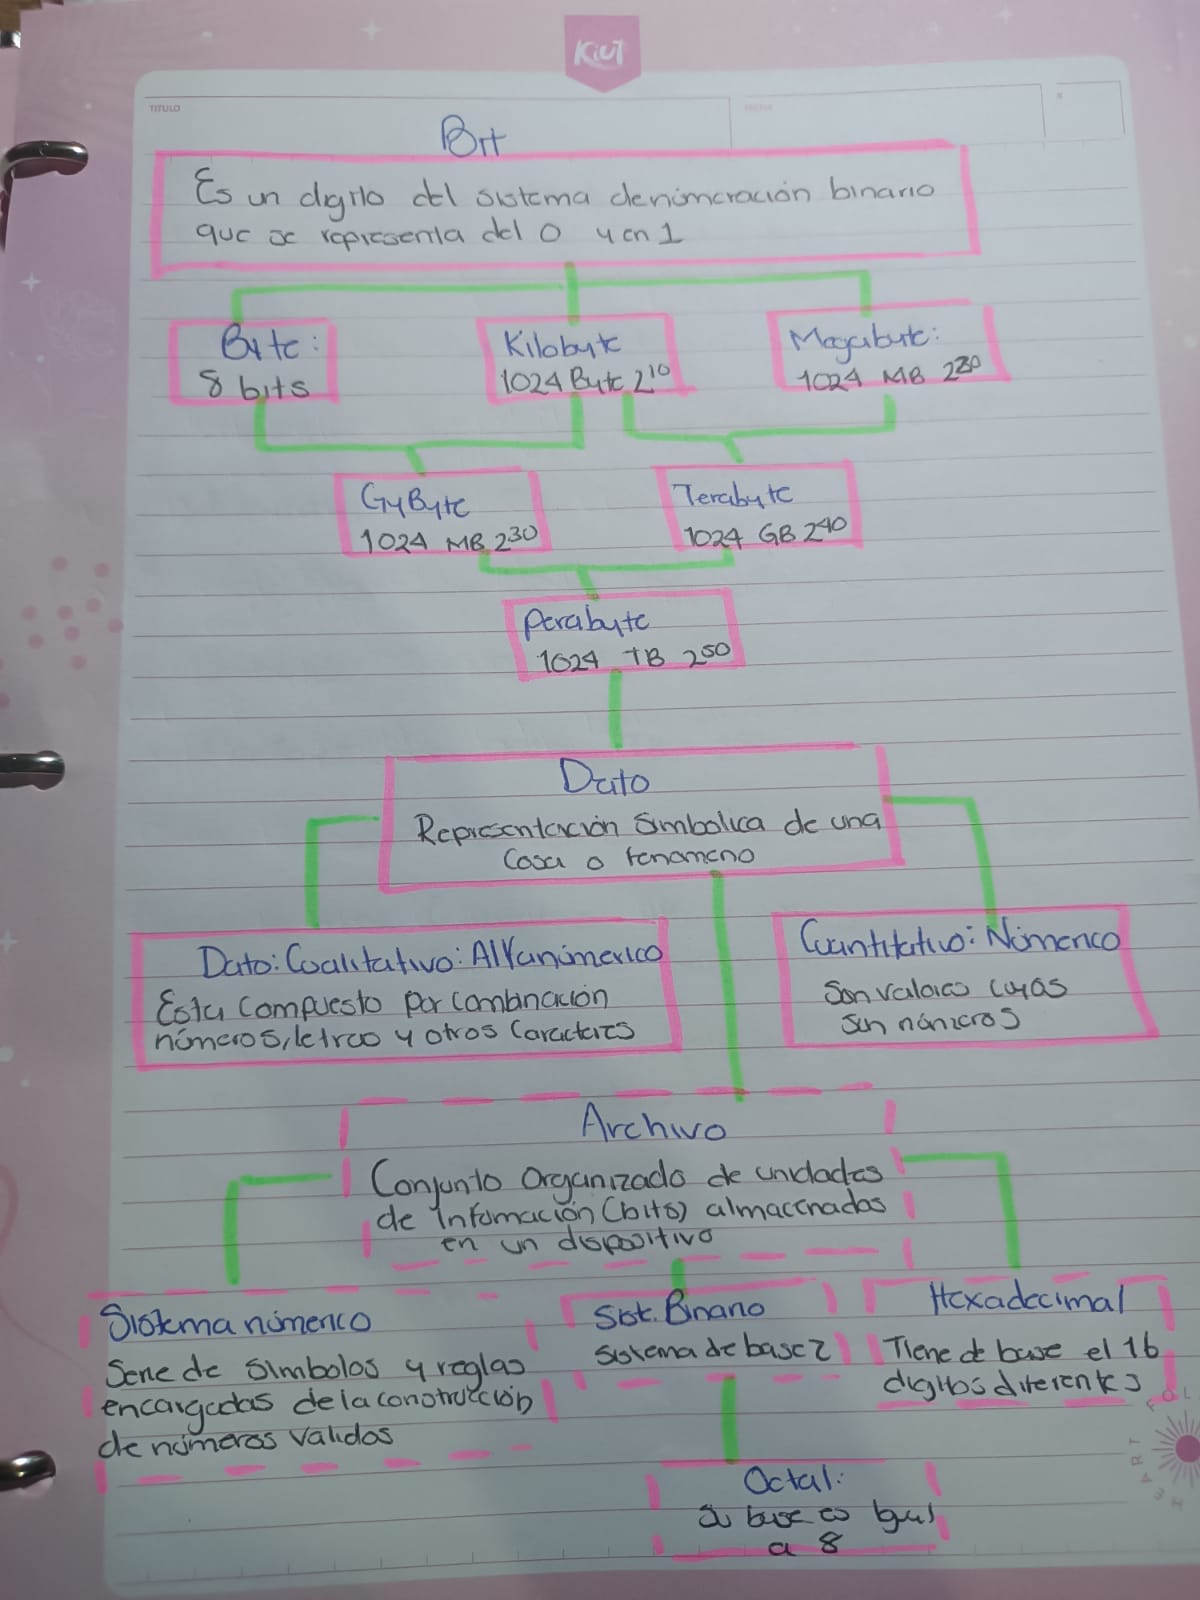 KiUT
TITULO
Bit
Es un digito del sistema de númeración binario
que se representa del 0 y en 1
Byte:
8 bits
Kilobyte
1024 Byte 2^10
Megabyte:
1024 MB 2^20
GyByte
1024 MB 2^30
Terabyte
1024 GB 2^40
Perabyte
1024 TB 2^50
Dato
Representación simbolica de una
Cosa o fenomeno
Dato: Cualitativo: Alfanúmerico
Esta compuesto por combinación
números, letras y otros Caracteres
Cuantitativo: Númerico
Son valores cuyas
son números
Archivo
Conjunto Organizado de unidades
de Infomación (bits) almacenados
en un dispositivo
Sistema númerico
Serie de simbolos y reglas
encargadas de la construcción
de números validos
Sist. Binario
Sistema de base 2
Hexadecimal
Tiene de base el 16
digitos diferentes
Octal:
Su base es Igual
a 8